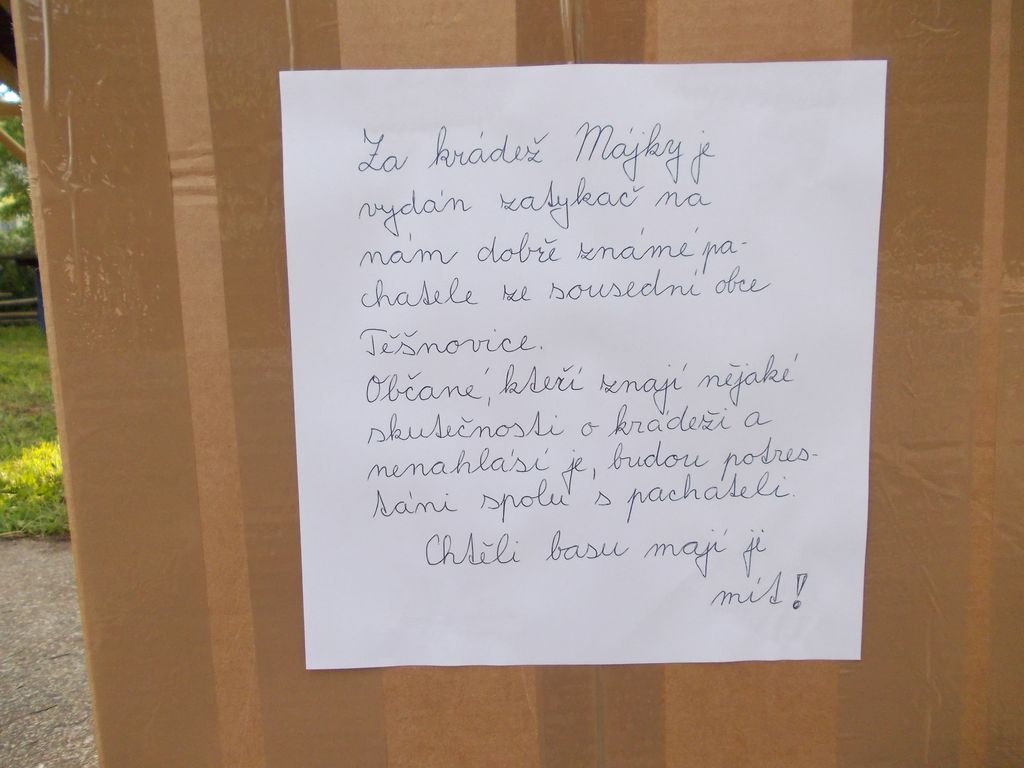 Za krádež Májky je
vydán zatykač na
nám dobře známé pa-
chatele ze sousední obce
Těšnovice.
Občané, kteří znají nějaké
skutečnosti o krádeži a
nenahlásí je, budou potres-
táni spolu s pachateli.
Chtěli basu mají ji
mít!